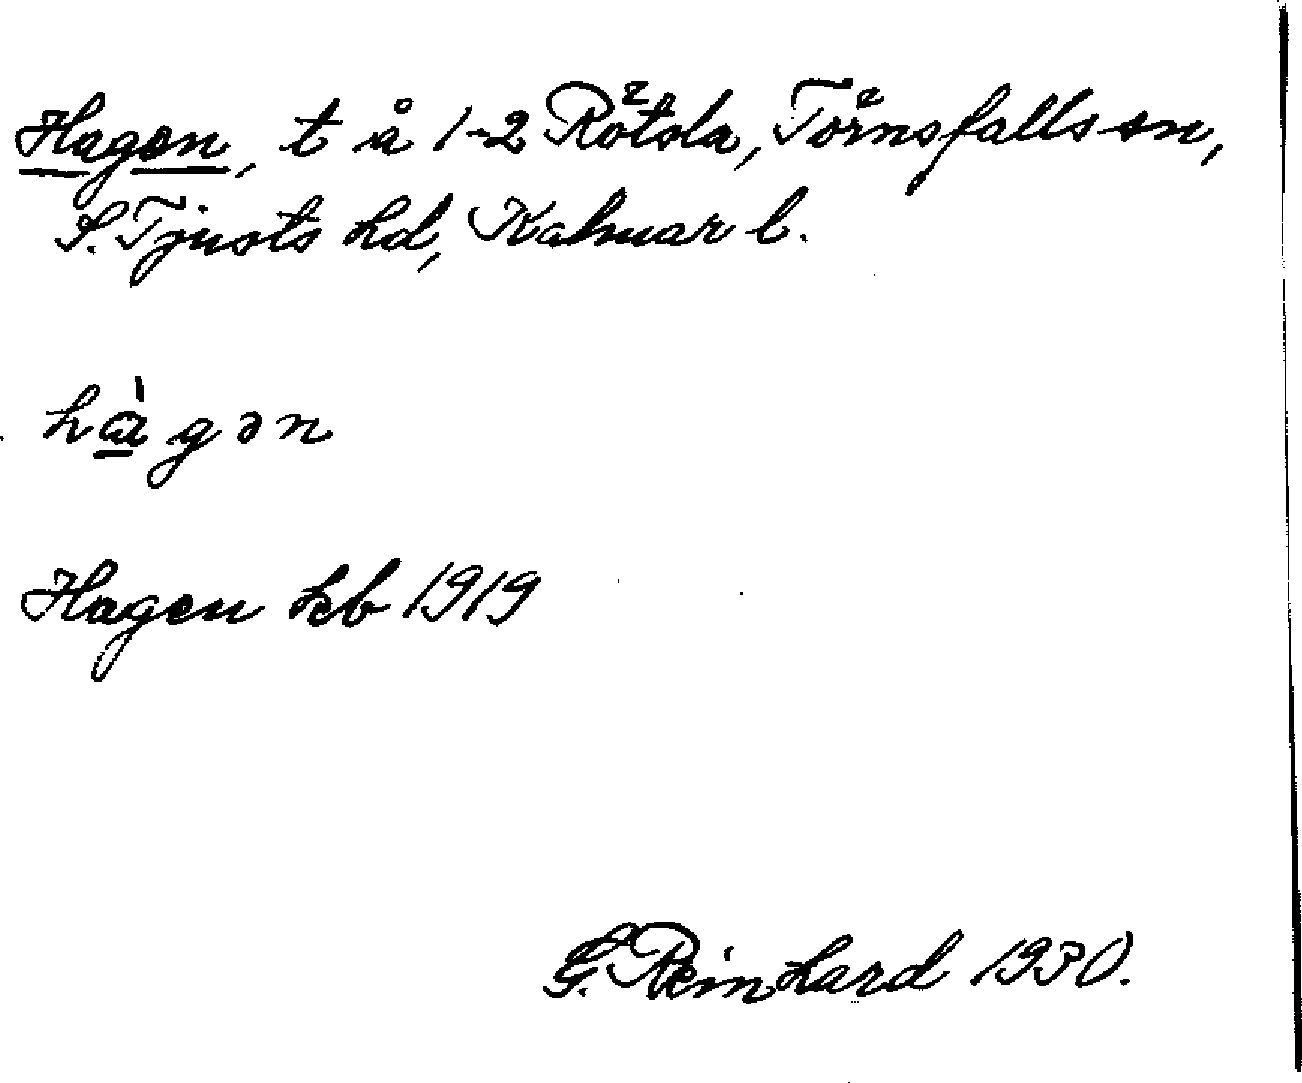 Hagen, t å 1-2 Rötsla, Törnsfalls sn,
S. Tjusts hd, Kalmar l.
hàgən
Hagen kb 1919
G. Reinhard 1930.